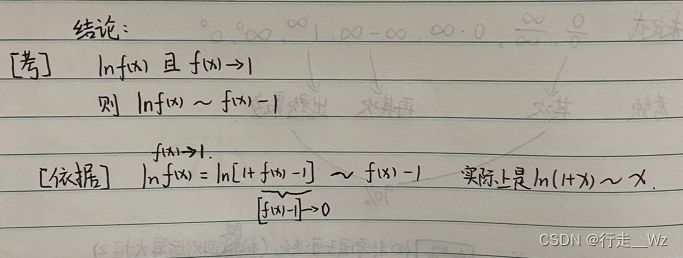 结论:
[考] lnf(x) 且 f(x)→1
则 lnf(x) ~ f(x)-1
f(x)→1.
[依据] lnf(x) = ln[1+f(x)-1] ~ f(x)-1 实际上是ln(1+x)~x.
[f(x)-1]→0
CSDN @行走__Wz